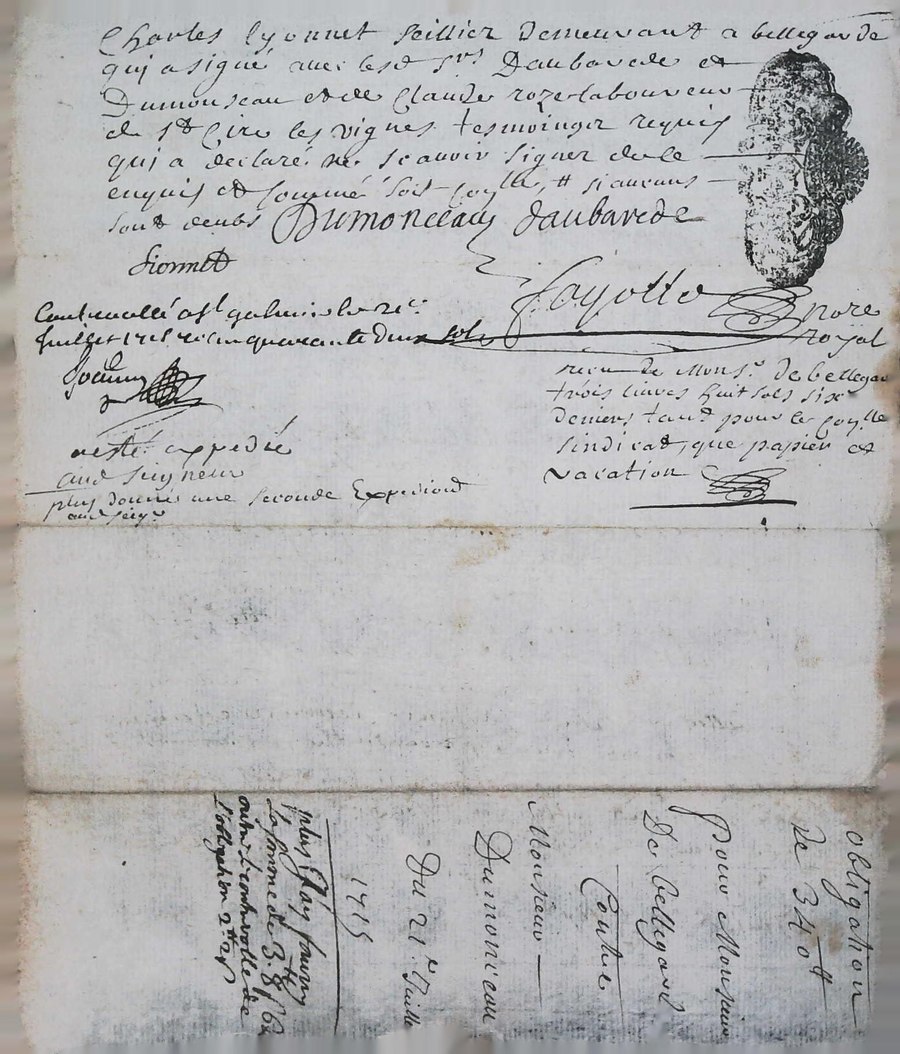 Charles Lyonnet sellier demeurant a bellegarde
qui a signé avec lesd srs Daubarede et
Dumonseau et de Claude roze laboureur
de st Cire les vignes tesmoinger requis
qui a declaré ne scauoir signer de ce
enquis et sommé soit coylle, # si auvans
sont deubs Dumonceau daubarede
Lionnet
Fayolle nore
royal
Controollé a st galmier le 21e
Juillet 1715 re cinquante deux sols
receu de Monsr. De bellegar
trois livres huit sols six
deniers tant pour le coylle
sindicat, que papier et
vacation
a esté expedié
aud seigneur
plus donné une seconde Expediond
aud seigr
obligation
de 340#
Pour Monsieur
De bellegard
Contre
Monsieur
Dumonceau
Du 21e Juille
1715
plus jay fourny
La somme de 3# 8s 6d
outre le controolle de
l'obligation 2#